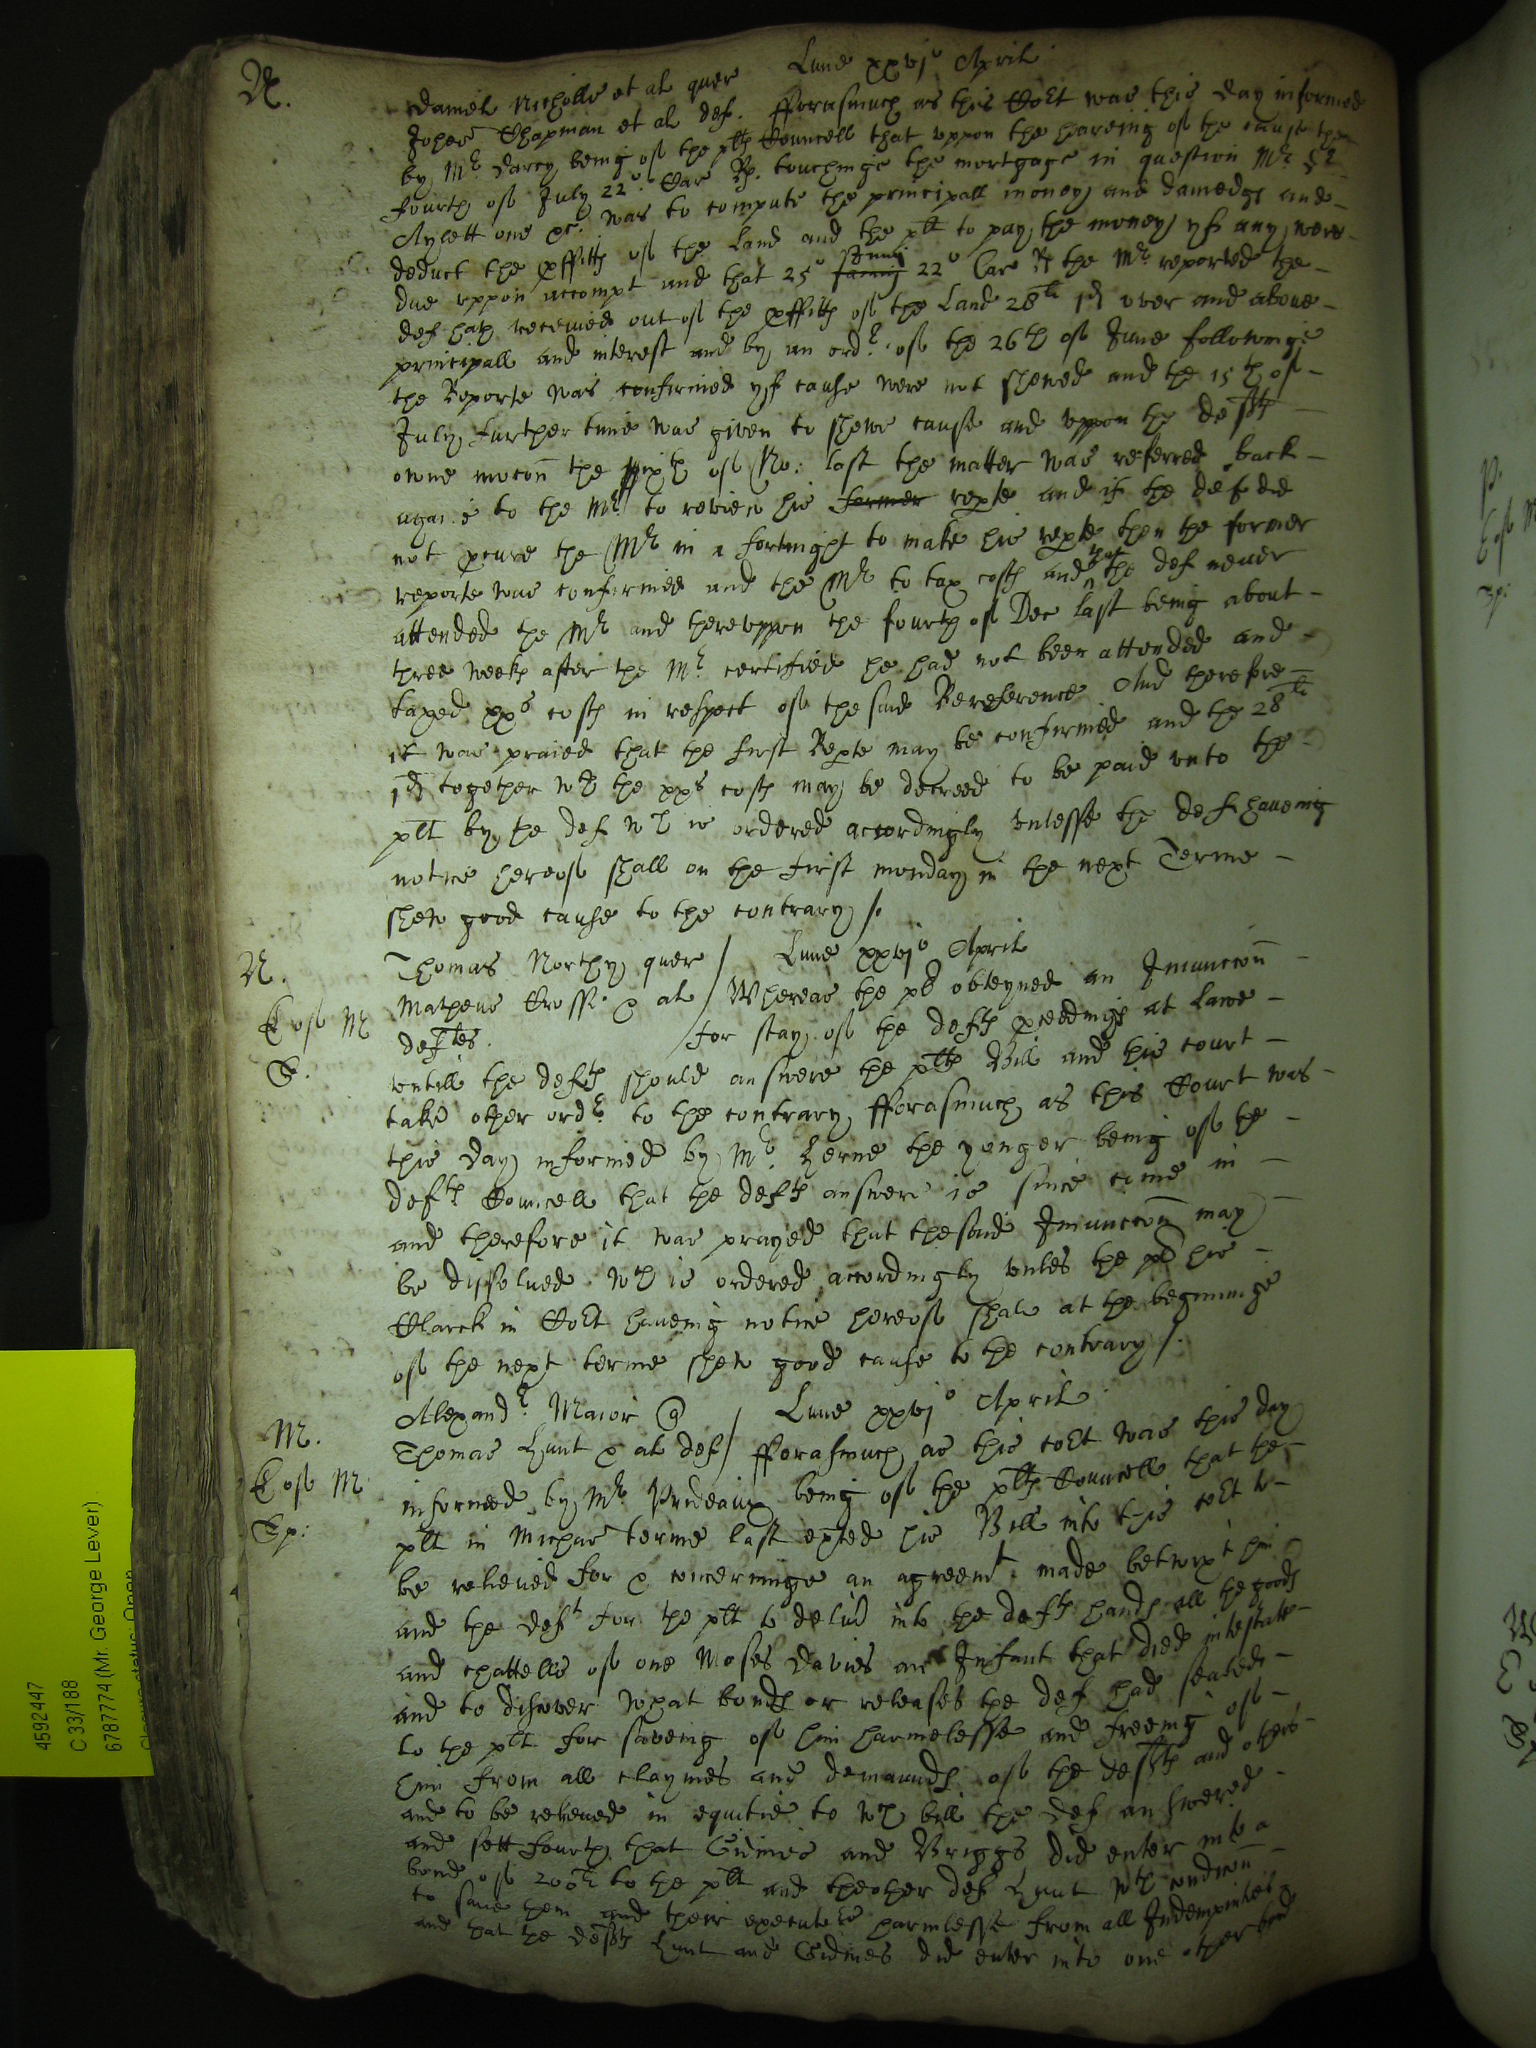 N.
Lune xxvjo April
Daniel Nicholls et al quer
Johes Chapman et al def. fforasmuch as this Cort was this day informed
by Mr Darcy being of the plts Councell that uppon the heareing of the cause the
fourth of July 22o. Car Rs. touchinge the mortgage in question Mr Dr
Aylett one &c. was to compute the principall money and damedgs and
deduct the pffitts of the Land and the plt to pay the money yf any were
due uppon accompt and that 25o Junij 22o Car R the Mr reported the
def hath received out of the pffitts of the Land 28li over and above
principall and interest and by an ordr. of the 26th of June followinge
the Reporte was confirmed yf cause were not shewed and the 15th of
July further time was given to shewe cause and uppon the defts
owne mocon the sixth of No: last the matter was referred back
againe to the Mr to review his former repte and if the def did
not pcure the Mr in a fortnight to make his repte then the former
reporte was confirmed and the Mr to tax costs and that the def never
attended the Mr and thereuppon the fourth of Dec last being about
three weeks after the Mr certified he had not been attended and
taxed xxs costs in respect of the said Rereference And therefore
it was praied that the first Repte may be confirmed and the 28li
together wth the xxs costs may be decreed to be paid unto the
plt by the def wch is ordered accordingly unlesse the def haveing
notice hereof shall on the first monday in the next Terme
shew good cause to the contrary /.
N.
Thomas Northy quer / Lune xxvjo April
Matheus Crosse & al / Whereas the plt obteyned an Iniunccon
E of M
deftes. / for stay of the defts pceedings at Lawe
S.
untill the defts should answere the plts Bill and this court
take other ordr to the contrary fforasmuch as this Court was
this day informed by Mr. Herne the yonger being of the
defts Councell that the defts answere is since come in
and therefore it was prayed that the said Iniunccon may
be dissolved wch is ordered accordingly unles the plt his
Clarck in Cort haveing notice hereof shall at the beginninge
of the next terme shew good cause to the contrary /.
Alexandr Maior Q / Lune xxvjo April
M.
Thomas Hunt & al def / fforasmuch as this cort was this day
E of M
informed by Mr. Prideaux being of the plts Councell that the
plt in Michas terme last exted his Bill into this cort to
be releived for & concerninge an agreemt. made betwixt him
and the deft for the plt to delivr into the defts hands all the goods
and chattells of one Moses Davies an Infant that died intestate
and to discover what bonds or releases the def had sealed
to the plt for saveing of him harmelesse and freeing of
him from all claymes and demaunds of the defts and others
and to be releived in equitie to wch bill the def answered
and sett fourth that Gidnies and Briggs did enter into a
bond of 200li to the plt and the other def Hunt wth condicon
to save them and their executrs harmlesse from all Indempnities
and that the defts Hunt and Gidnies did enter into one other bond
4592447
C 33/188
6787774 (Mr. George Lever)
Closure status: Open